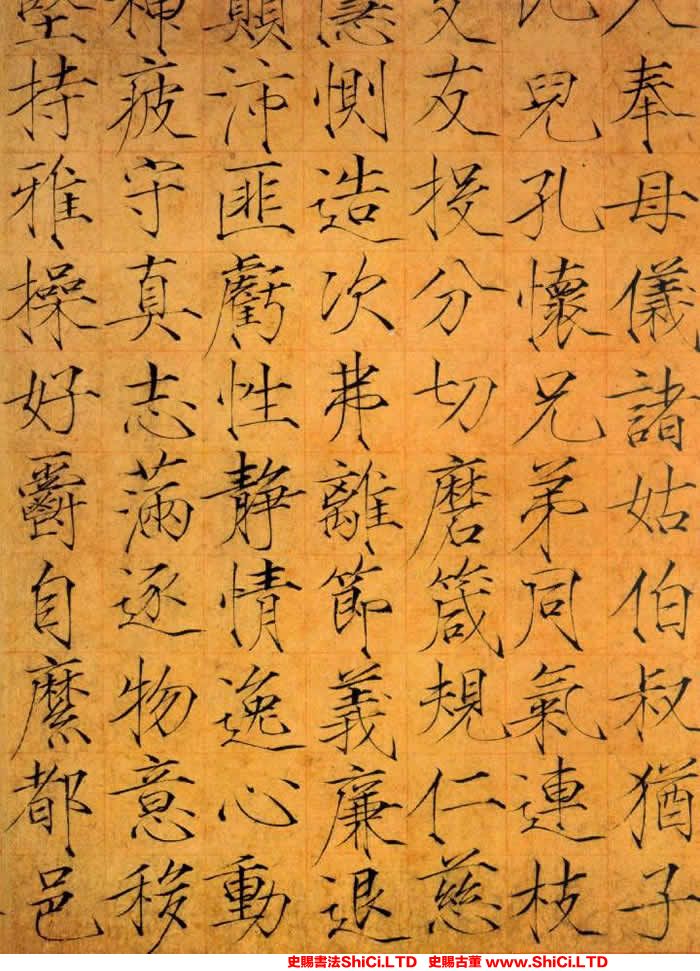 入奉母儀諸姑伯叔猶子
比兒孔懷兄弟同氣連枝
交友投分切磨箴規仁慈
隱惻造次弗離節義廉退
顛沛匪虧性靜情逸心動
神疲守真志滿逐物意移
堅持雅操好爵自縻都邑
史賜書法ShiCi.LTD 史賜古董 www.ShiCi.LTD